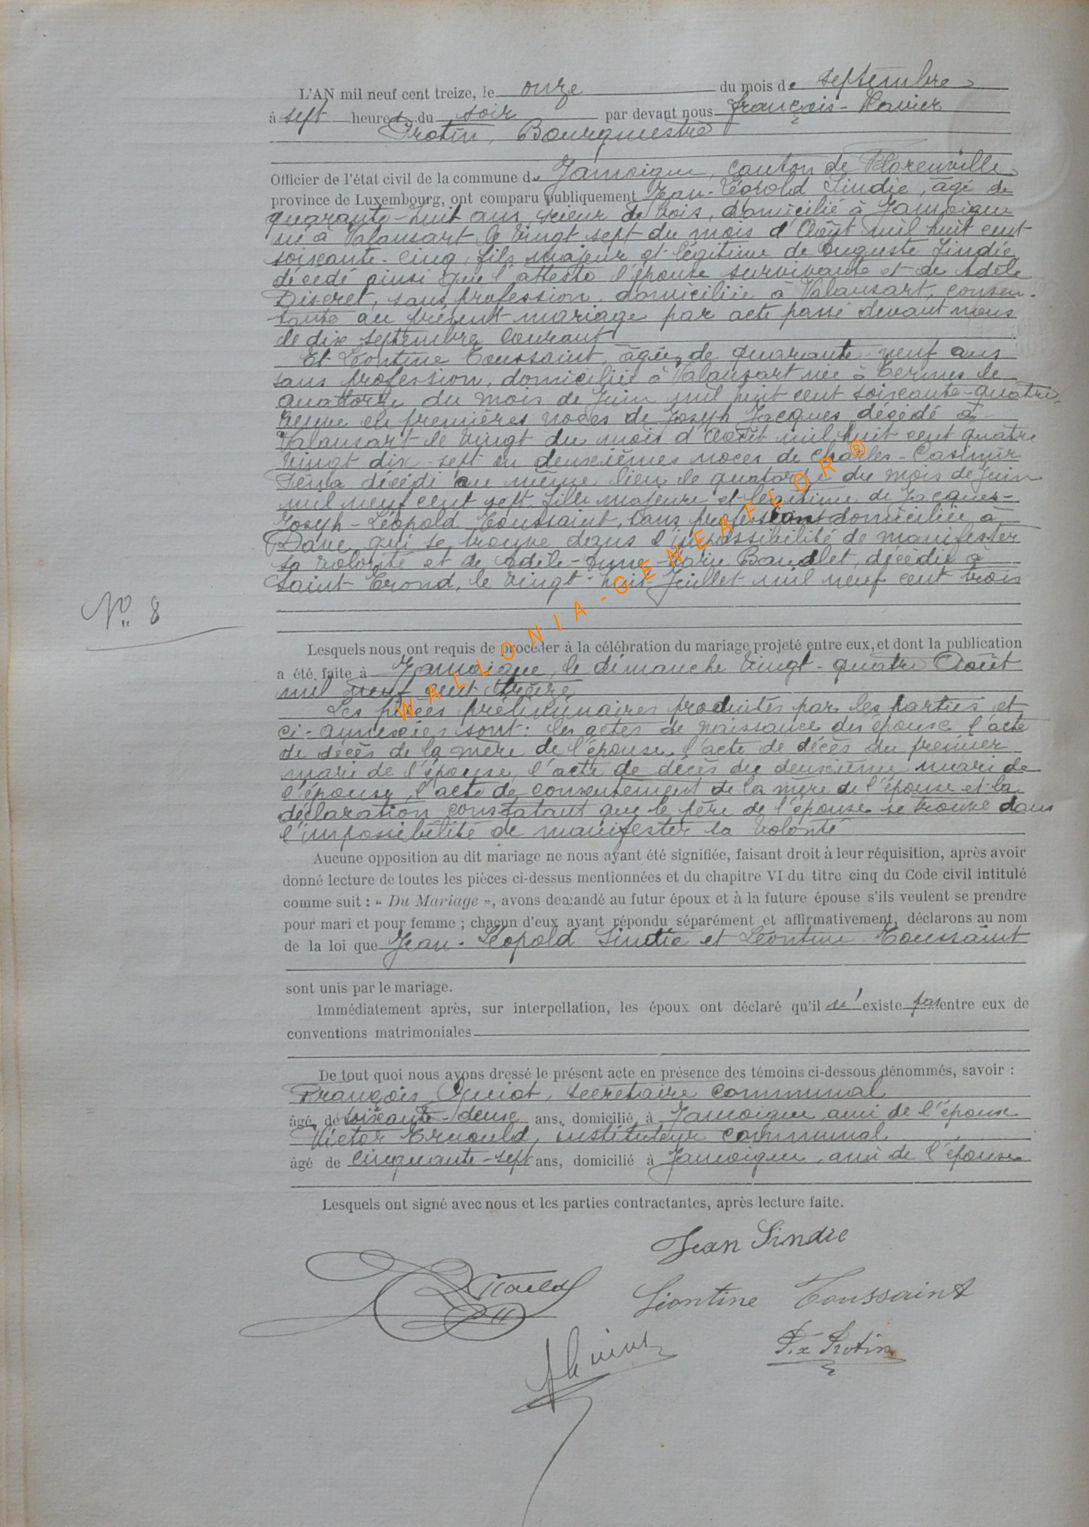 L'AN mil neuf cent treize, le onze du mois de septembre
à sept heures du soir par devant nous François-Xavier
Protin, Bourgmestre
Officier de l'état civil de la commune de Jamoigne, canton de Florenville
province de Luxembourg, ont comparu publiquement Jean-Léopold Sindic, âgé de
quarante-huit ans, scieur de bois, domicilié à Jamoigne
né à Valansart le vingt sept du mois d'Août mil huit cent
soixante-cinq, fils majeur et légitime de Auguste Sindic
décédé ainsi que l'atteste l'épouse survivante et de Adèle
Discret, sans profession, domiciliée à Valansart, consen-
tante au présent mariage par acte passé devant nous
le dix septembre courant
Et Léontine Toussaint, âgée de quarante-neuf ans
sans profession, domiciliée à Valansart née à Termes le
quatorze du mois de Juin mil huit cent soixante-quatre,
veuve en premières noces de Joseph Jacques décédé à
Valansart le vingt du mois d'Août mil huit cent quatre
vingt dix-sept en deuxièmes noces de Charles-Casimir
décédé au même lieu le quatorze du mois de Juin
mil neuf cent sept fille majeure et légitime de Jacques-
Joseph-Léopold Toussaint, sans profession domicilié à
Dave, qui se trouve dans l'impossibilité de manifester
sa volonté et de Adèle-Anne-Marie Baudlet, décédée à
Saint-Trond, le vingt-huit Juillet mil neuf cent trois
No. 8
Lesquels nous ont requis de procéder à la célébration du mariage projeté entre eux, et dont la publication
a été faite à Jamoigne le dimanche vingt-quatre Août
mil neuf cent treize
Les pièces préliminaires produites par les parties et
ci-annexées sont: les actes de naissance des épouse l'acte
de décès de la mère de l'épouse, l'acte de décès du premier
mari de l'épouse, l'acte de décès du deuxième mari de
l'épouse, l'acte de consentement de la mère de l'épouse et la
déclaration constatant que le père de l'épouse se trouve dans
l'impossibilité de manifester sa volonté
Aucune opposition au dit mariage ne nous ayant été signifiée, faisant droit à leur réquisition, après avoir
donné lecture de toutes les pièces ci-dessus mentionnées et du chapitre VI du titre cinq du Code civil intitulé
comme suit : « Du Mariage », avons demandé au futur époux et à la future épouse s'ils veulent se prendre
pour mari et pour femme ; chacun d'eux ayant répondu séparément et affirmativement, déclarons au nom
de la loi que Jean-Léopold Sindic et Léontine Toussaint
sont unis par le mariage.
Immédiatement après, sur interpellation, les époux ont déclaré qu'il n'existe pas entre eux de
conventions matrimoniales
De tout quoi nous avons dressé le présent acte en présence des témoins ci-dessous dénommés, savoir :
François Guiot, secrétaire communal
âgé de soixante-deux ans, domicilié à Jamoigne ami de l'épouse
Victor Arnould, instituteur communal
âgé de cinquante-sept ans, domicilié à Jamoigne, ami de l'épouse
Lesquels ont signé avec nous et les parties contractantes, après lecture faite.
Jean Sindic
Léontine Toussaint
F.x Protin
WALLONIA-GENEAFLOR®